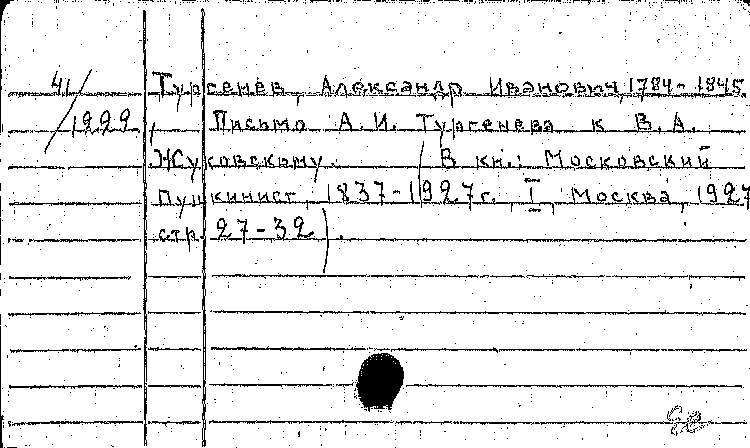 41/1999
Тургенев, Александр Иванович, 1784-1845
Письмо А.И. Тургенева к В.А.
Жуковскому. (В кн.: Московский
Пушкинист, 1837-1927г. I, Москва, 1927
стр. 27-32).